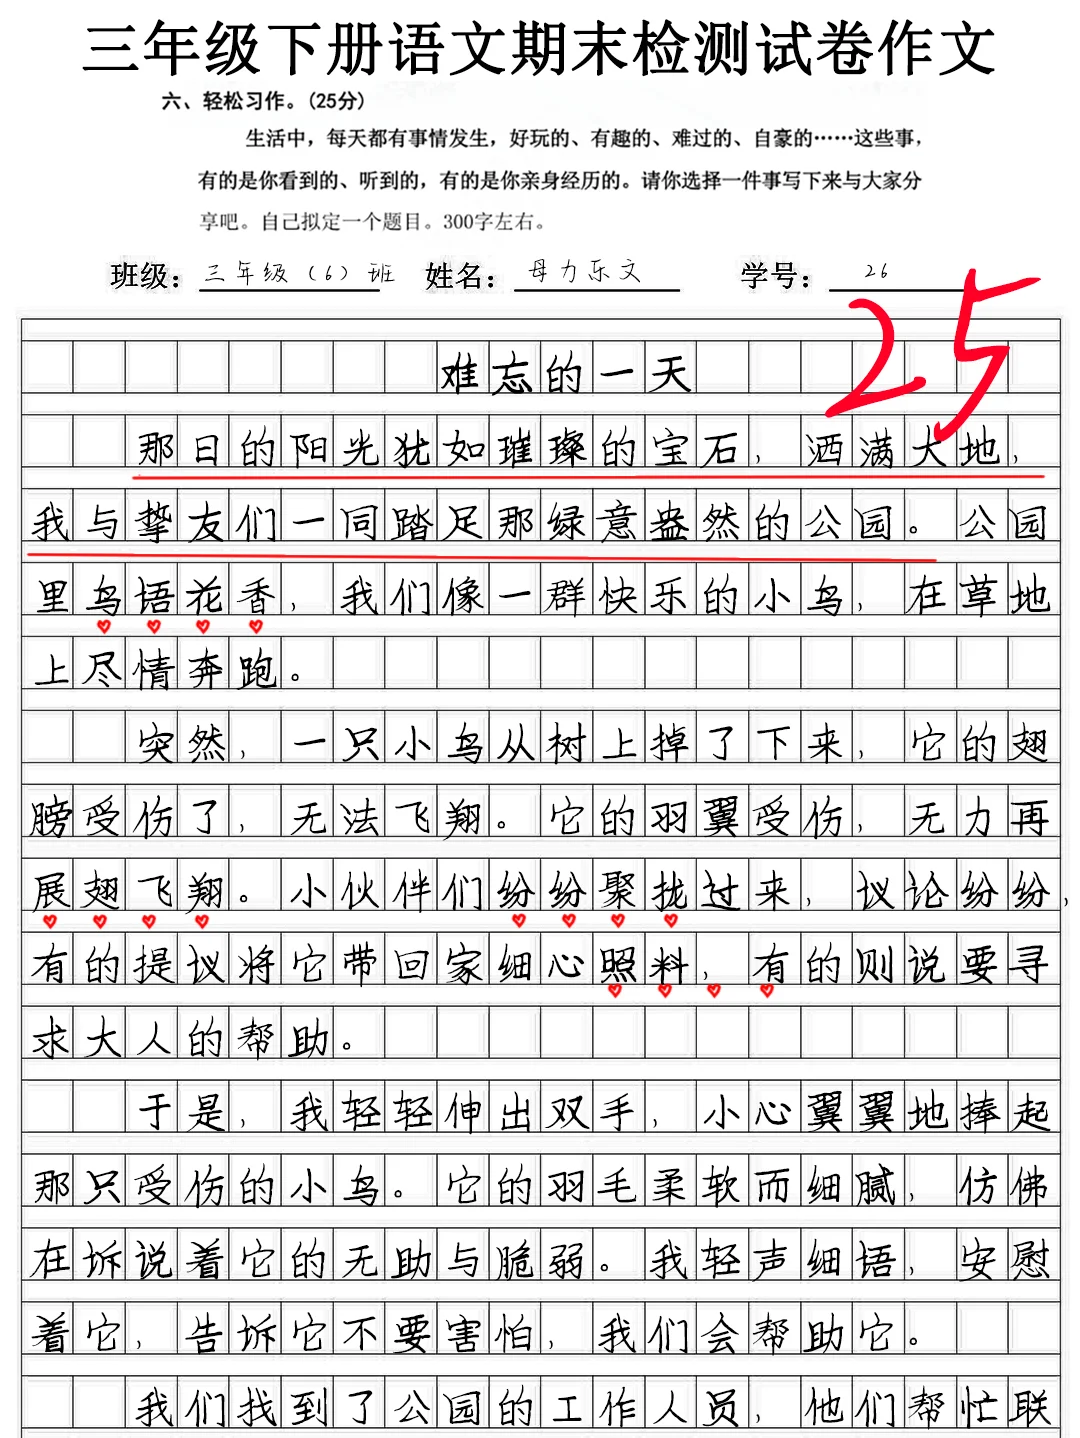 三年级下册语文期末检测试卷作文
六、轻松习作。(25分)
生活中，每天都有事情发生，好玩的、有趣的、难过的、自豪的……这些事，
有的是你看到的、听到的，有的是你亲身经历的。请你选择一件事写下来与大家分
享吧。自己拟定一个题目。300字左右。
班级：三年级（6）班 姓名：母力乐文 学号：26
25
难忘的一天
那日的阳光犹如璀璨的宝石，洒满大地，
我与挚友们一同踏足那绿意盎然的公园。公园
里鸟语花香，我们像一群快乐的小鸟，在草地
上尽情奔跑。
突然，一只小鸟从树上掉了下来，它的翅
膀受伤了，无法飞翔。它的羽翼受伤，无力再
展翅飞翔。小伙伴们纷纷聚拢过来，议论纷纷，
有的提议将它带回家细心照料，有的则说要寻
求大人的帮助。
于是，我轻轻伸出双手，小心翼翼地捧起
那只受伤的小鸟。它的羽毛柔软而细腻，仿佛
在诉说着它的无助与脆弱。我轻声细语，安慰
着它，告诉它不要害怕，我们会帮助它。
我们找到了公园的工作人员，他们帮忙联